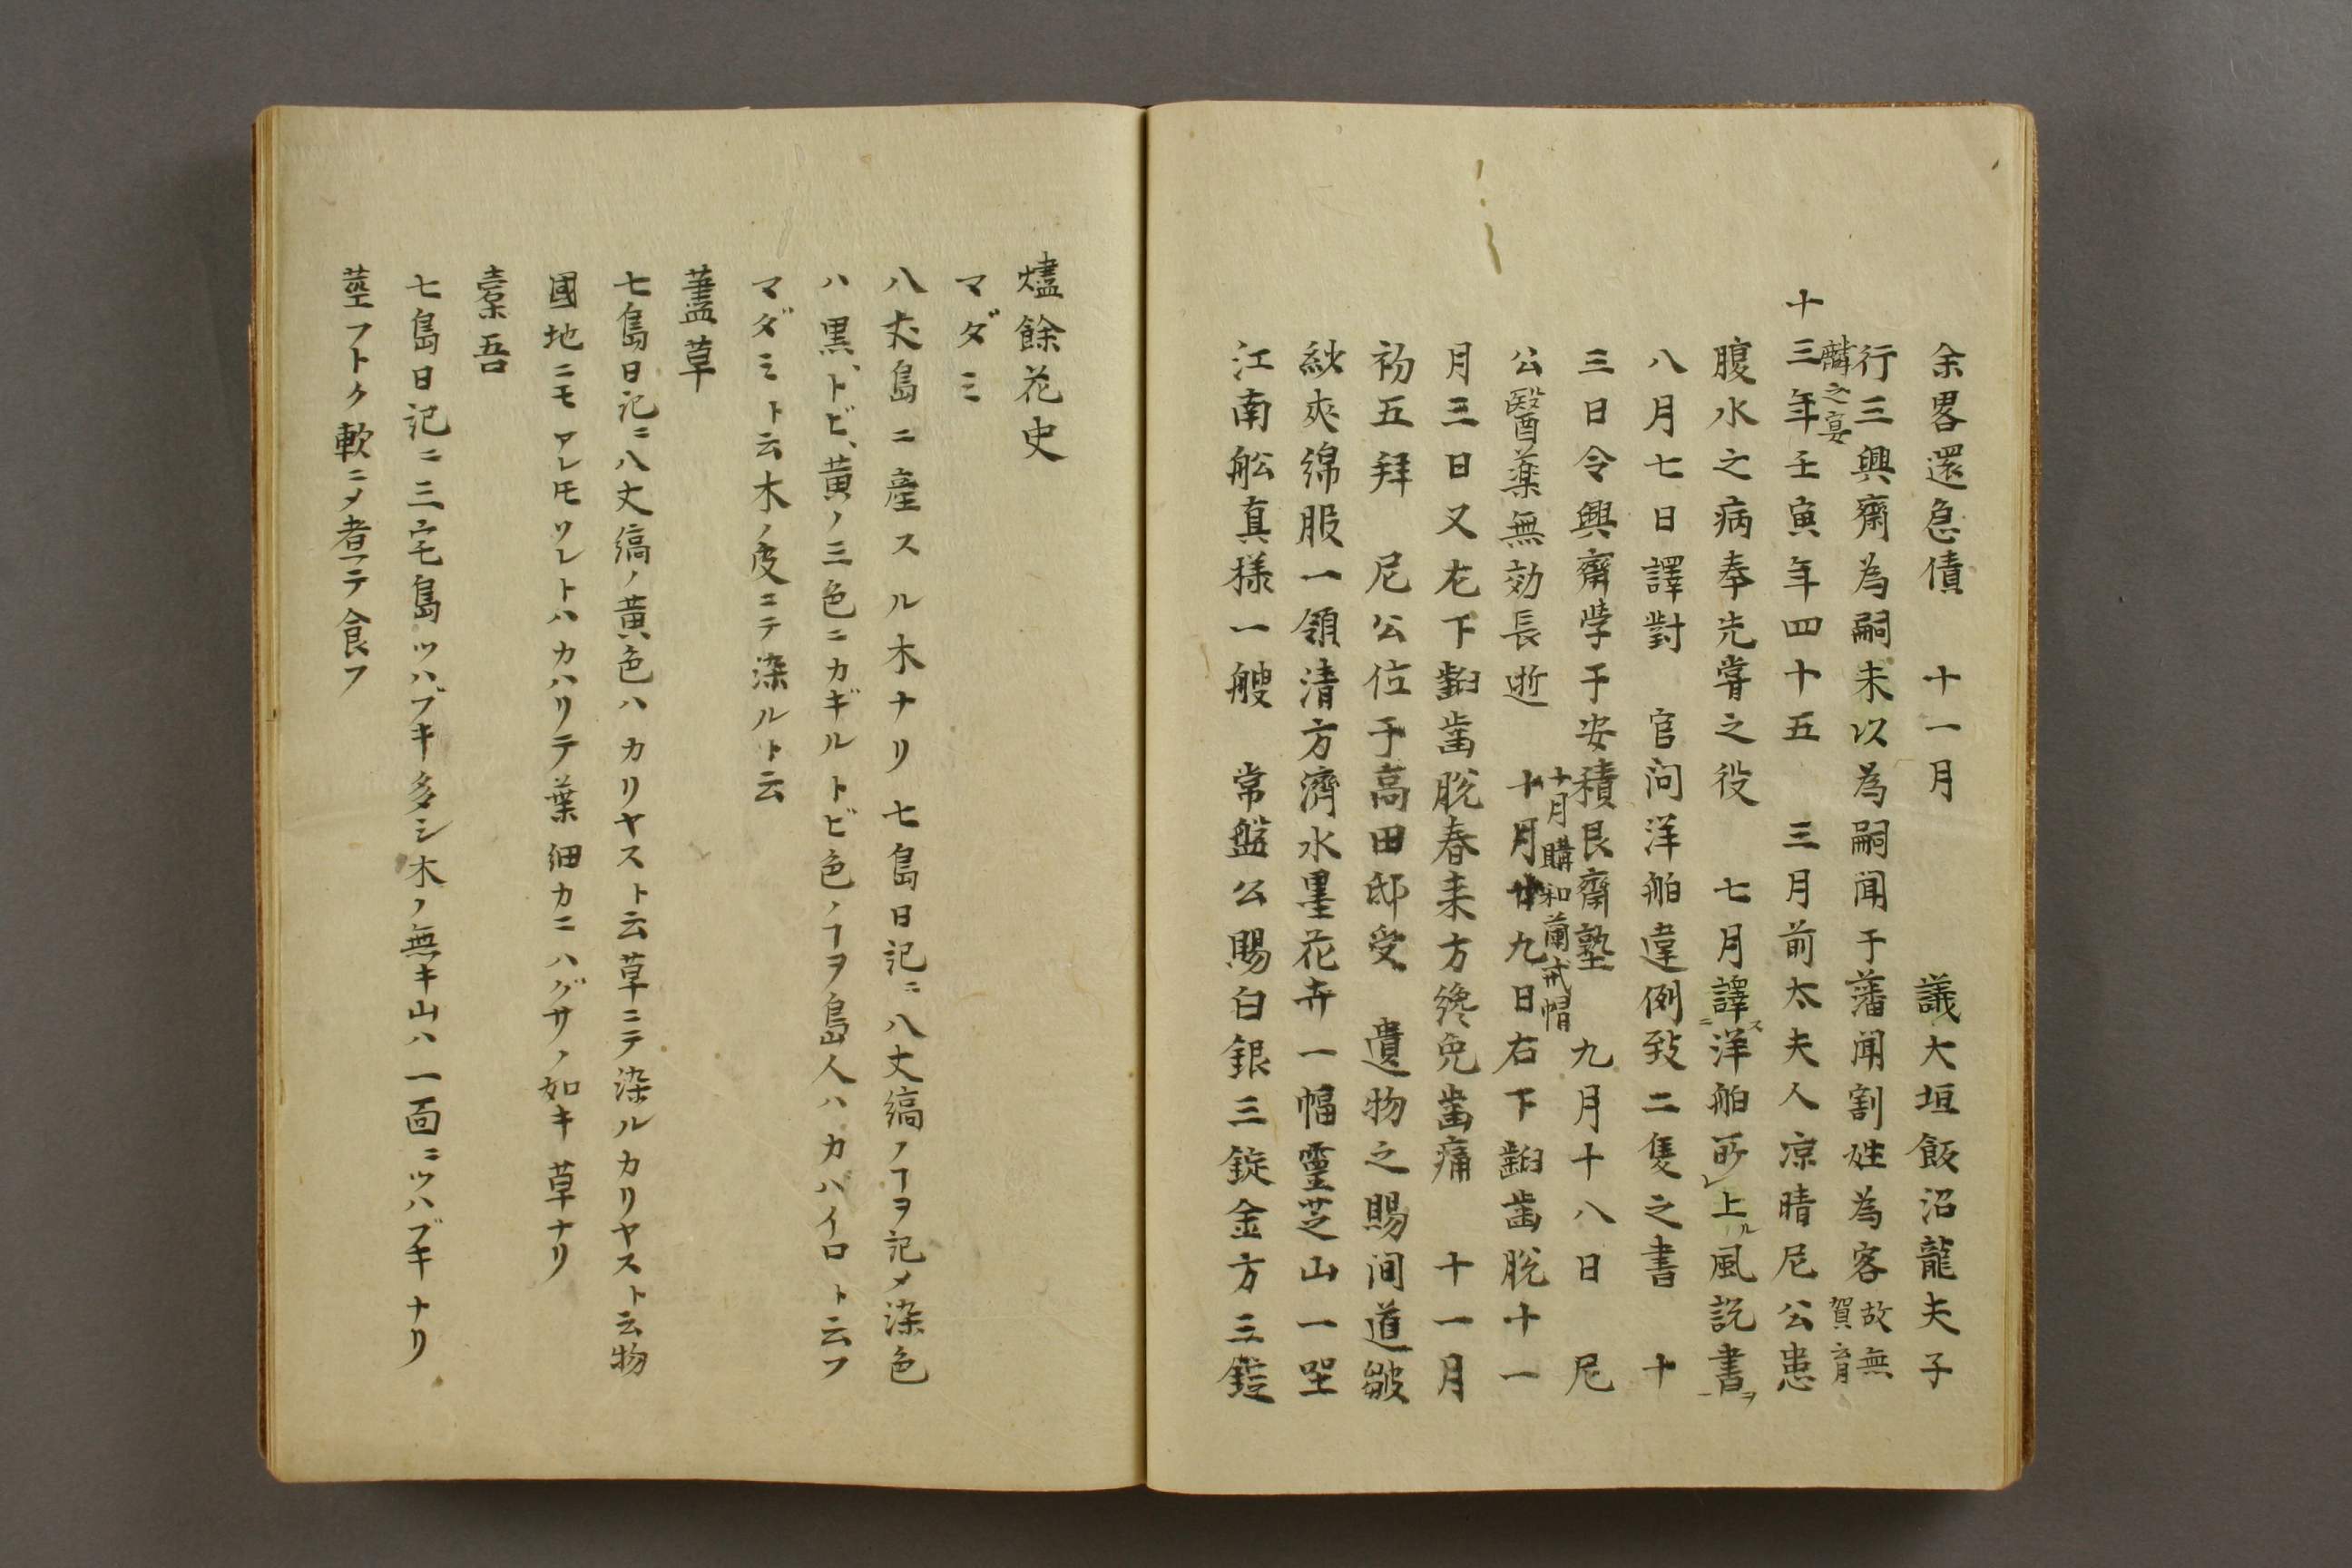 余畧還急債　十一月　　　議大垣飯沼龍夫子
行三興齋為嗣未以為嗣聞于藩聞割姓為客故無賀育
麟之宴
十三年壬寅年四十五　三月前太夫人凉晴尼公患
腹水之病奉先嘗之役　七月譯洋舶所上風説書
八月七日譯對　官问洋舶違例致二隻之書　十
三日令興齋学于安積艮齋塾　九月十八日　尼
十月購和蘭戒帽
公醫薬無効長逝　十月廿九日右下齨歯脱十一
月三日又左下齨歯脱春来方纔免歯痛　十一月
初五拜　尼公位于高田邸受　遺物之賜间道皺
紗夾綿服一領清方濟水墨花卉一幅靈芝山一坐
江南舩真様一艘　常盤公賜白銀三錠金方三錠
燼餘花史
マダミ
八丈島ニ産スル木ナリ七島日記ニ八丈縞ノヿヲ記メ染色
ハ黒、トビ、黄ノ三色ニカギルトビ色ノヿヲ島人ハカバイロト云フ
マダミト云木ノ皮ニテ染ルト云
藎草
七島日記ニ八丈縞ノ黄色ハカリヤスト云草ニテ染ルカリヤスト云物
國地ニモアレ𪜈ソレトハカハリテ葉細カニハグサノ如キ草ナリ
橐吾
七島日記ニ三宅島ツハブキ多シ木ノ無キ山ハ一面ニツハブキナリ
莖フトク軟ニメ煮テ食フ